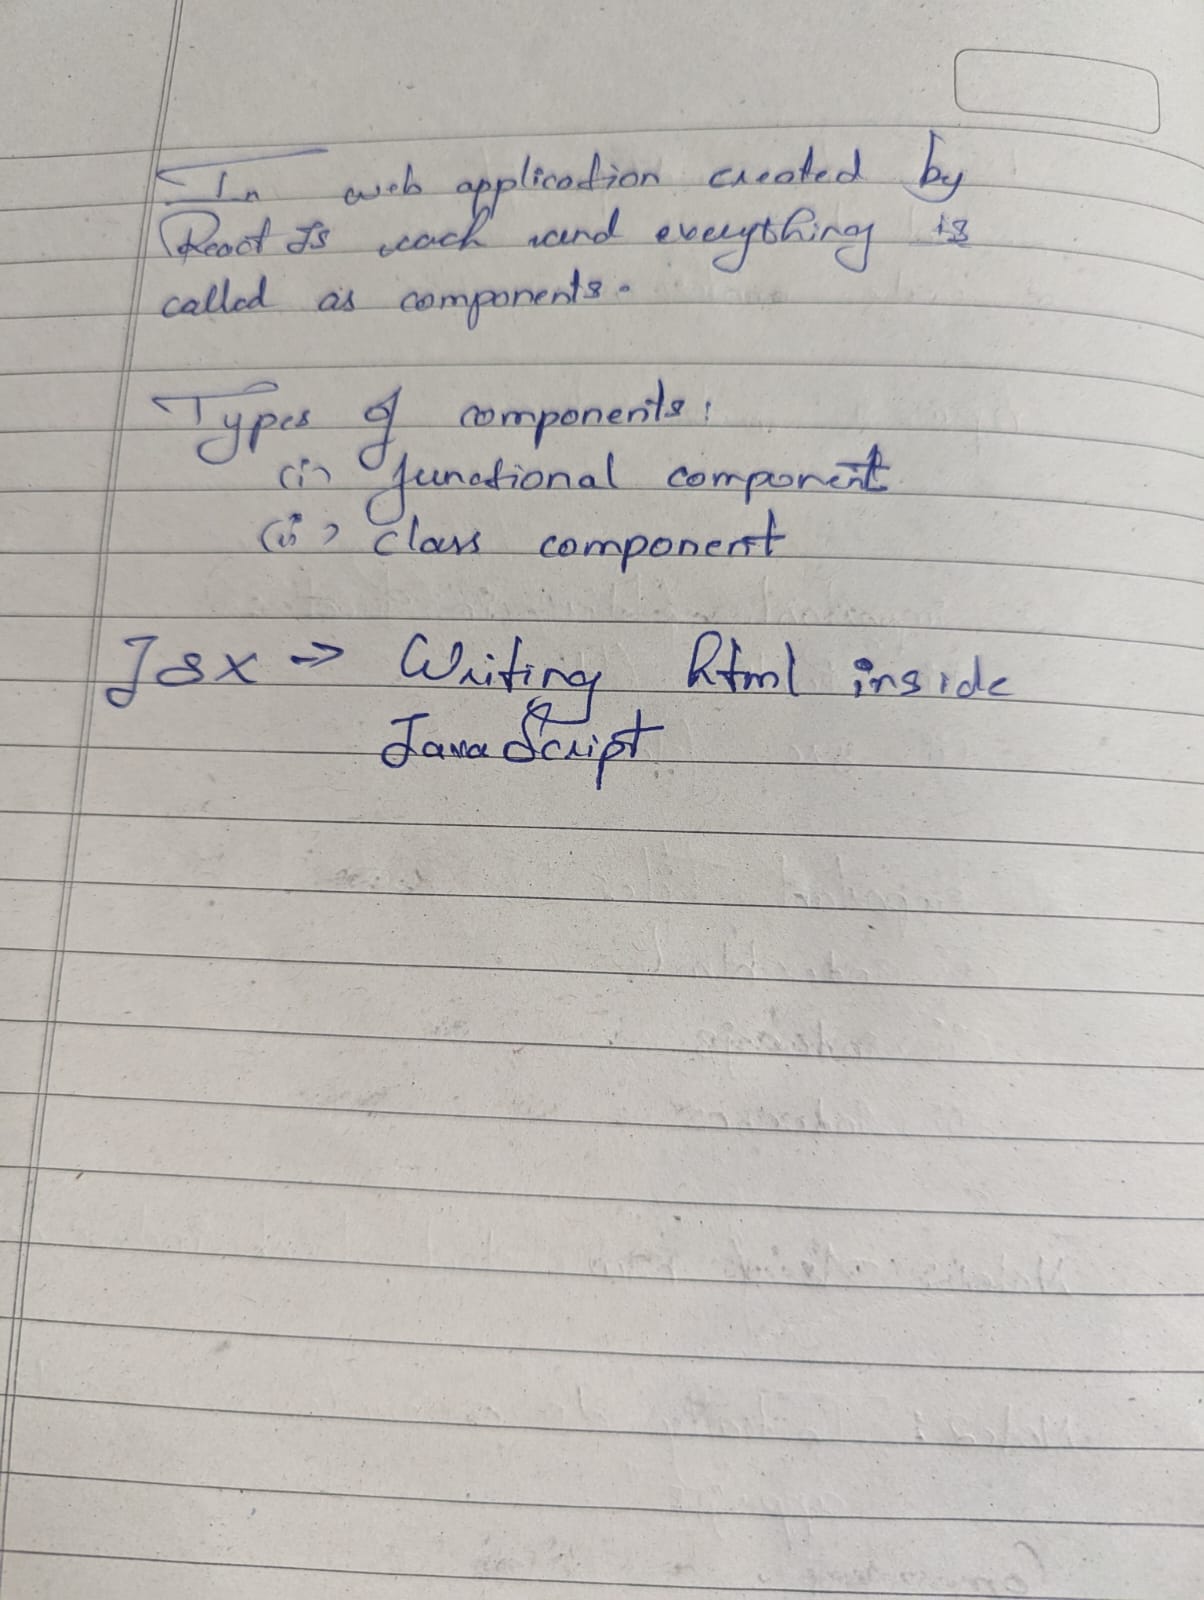 In web application created by
React Js each and everything is
called as components.
Types of components:
(i) functional component
(ii) class component
Jsx → Writing html inside
JavaScript